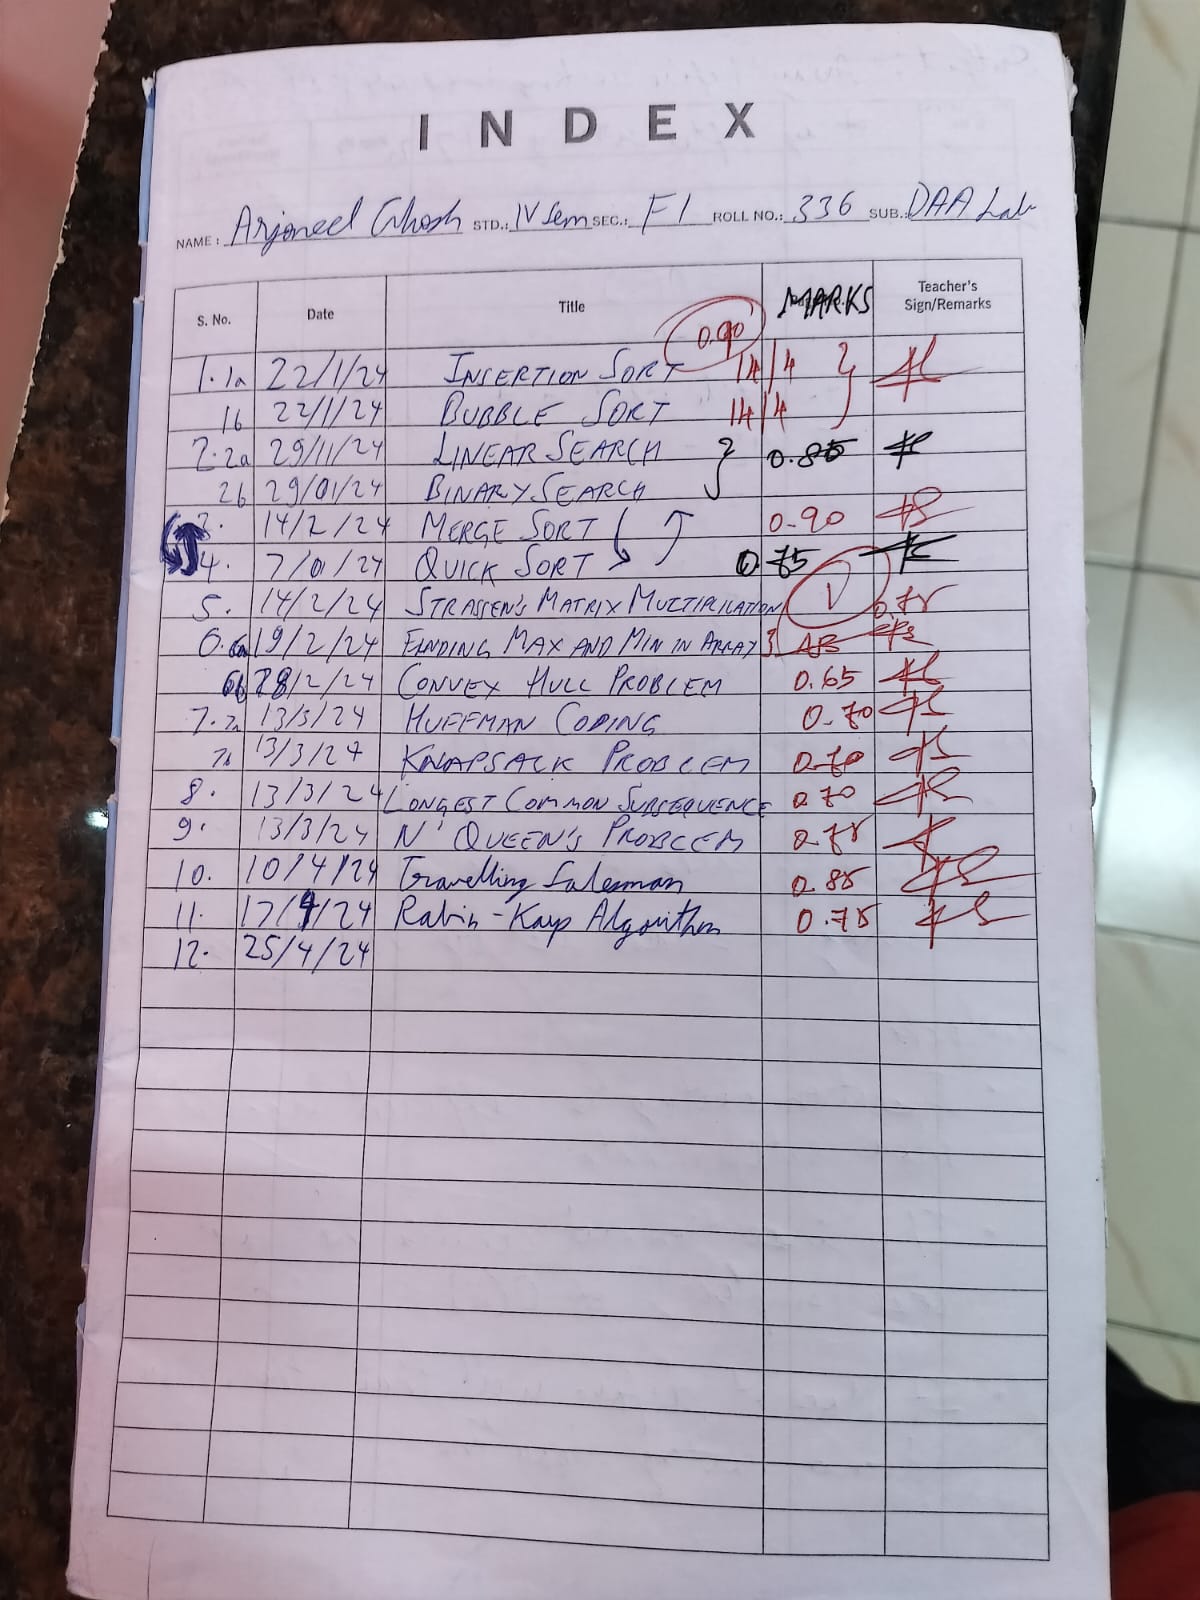 INDEX
NAME: Arjoneel Ghosh STD.: IV Sem SEC.: F1 ROLL NO.: 336 SUB.: DAA Lab
S. No. Date Title MARKS Teacher's Sign/Remarks
0.90
1. 1a 22/1/24 INSERTION SORT 14/4
1b 22/1/24 BUBBLE SORT 14/4
2. 2a 29/11/24 LINEAR SEARCH 0.85
2b 29/01/24 BINARY SEARCH
3. 14/2/24 MERGE SORT 0.90
4. 7/01/24 QUICK SORT 0.75
5. 14/2/24 STRASSEN'S MATRIX MULTIPLICATION 0.75
6. 6a 19/2/24 FINDING MAX AND MIN IN ARRAY AB
6b 28/2/24 CONVEX HULL PROBLEM 0.65
7. 7a 13/3/24 HUFFMAN CODING 0.70
7b 13/3/24 KNAPSACK PROBLEM 0.70
8. 13/3/24 LONGEST COMMON SUBSEQUENCE 0.70
9. 13/3/24 N' QUEEN'S PROBLEM 0.75
10. 10/4/24 Travelling Salesman 0.85
11. 17/4/24 Rabin-Karp Algorithm 0.75
12. 25/4/24